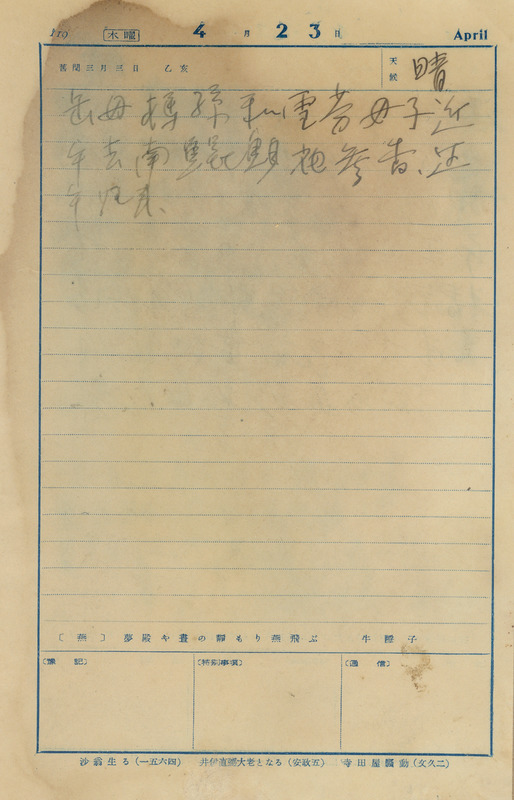 119 木曜 4月23日 April
舊閏三月三日 乙亥 天候 晴
岳母 孫和雲芳母子近
午去南鯤鯓廟參香、近
午
〔燕〕 夢殿や晝の輝もり燕飛ぶ
〔豫記〕 〔特別事項〕 〔通信〕
沙翁生る(一五六四) 井伊直弼大老となる(安政五) 寺田屋騷動(文久二)